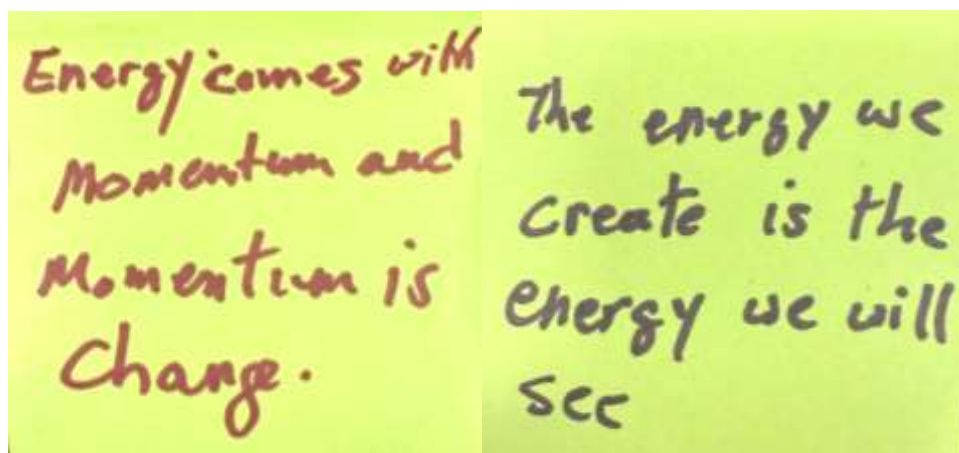 Energy comes with
Momentum and
Momentum is
Change.
The energy we
create is the
energy we will
see